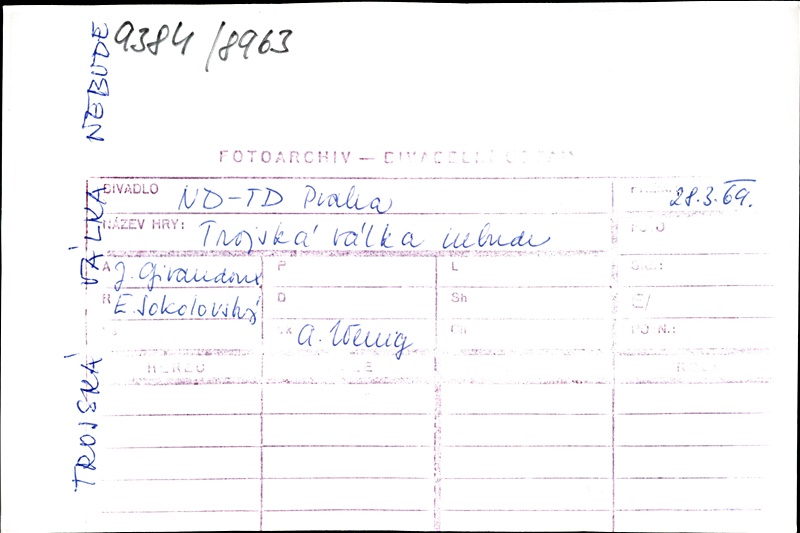 9384/8963
TROJSKÁ VÁLKA NEBUDE
FOTOARCHIV – DIVADELNÍ
DIVADLO ND-TD Praha 28.3.69.
NÁZEV HRY: Trojská válka nebude
A J. Giraudoux P L
R E. Sokolovský O Sh
A. Wenig
HEREC